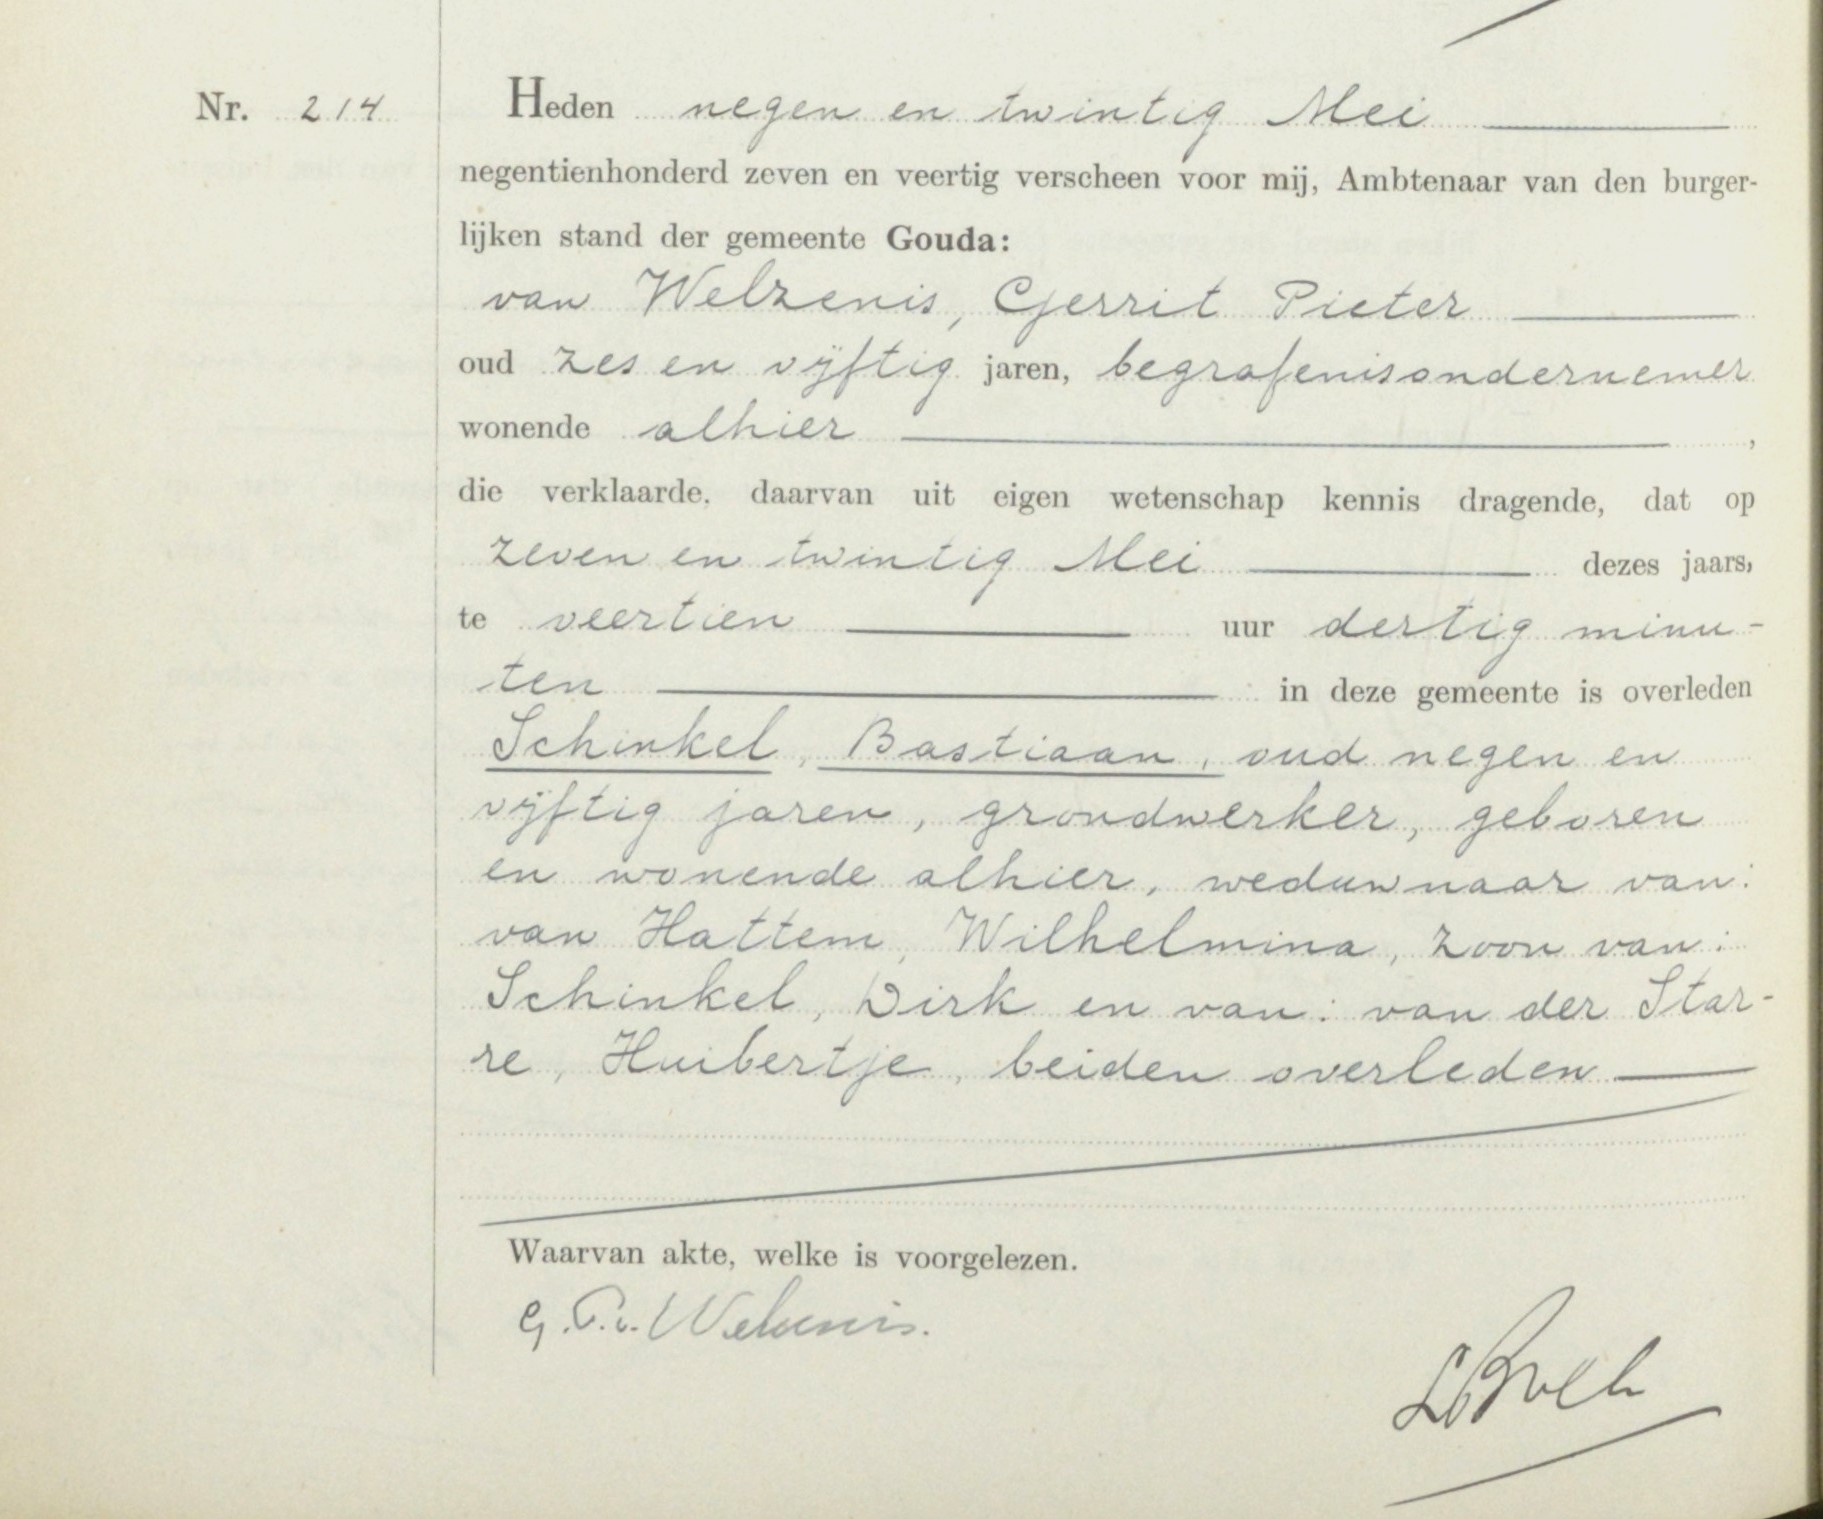 Nr. 214
Heden negen en twintig Mei
negentienhonderd zeven en veertig verscheen voor mij, Ambtenaar van den burger-
lijken stand der gemeente Gouda:
van Welzenis, Gerrit Pieter
oud zes en vijftig jaren, begrafenisondernemer
wonende alhier ,
die verklaarde, daarvan uit eigen wetenschap kennis dragende, dat op
zeven en twintig Mei dezes jaars,
te veertien uur dertig minu-
ten in deze gemeente is overleden
Schinkel, Bastiaan, oud negen en
vijftig jaren, grondwerker, geboren
en wonende alhier, weduwnaar van:
van Hattem, Wilhelmina, zoon van:
Schinkel, Dirk en van: van der Star-
re, Huibertje, beiden overleden
Waarvan akte, welke is voorgelezen.
G. P. v. Welzenis.